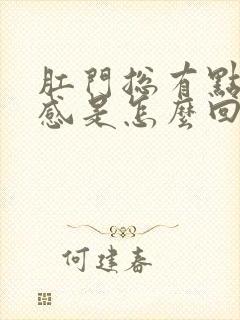 肛門總有點
感是怎麼回
何建春